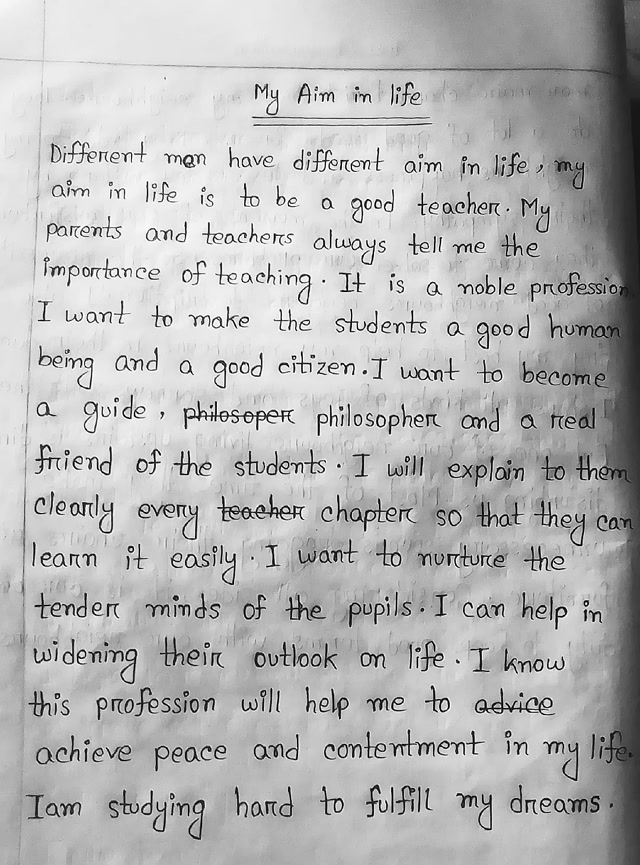 My Aim in life
Different men have different aim in life, my
aim in life is to be a good teacher. My
parents and teachers always tell me the
importance of teaching. It is a noble profession
I want to make the students a good human
being and a good citizen. I want to become
a guide, philosoper philosopher and a real
friend of the students. I will explain to them
clearly every teacher chapter so that they can
learn it easily. I want to nurture the
tender minds of the pupils. I can help in
widening their outlook on life. I know
this profession will help me to advice
achieve peace and contentment in my life.
Iam studying hard to fulfill my dreams.